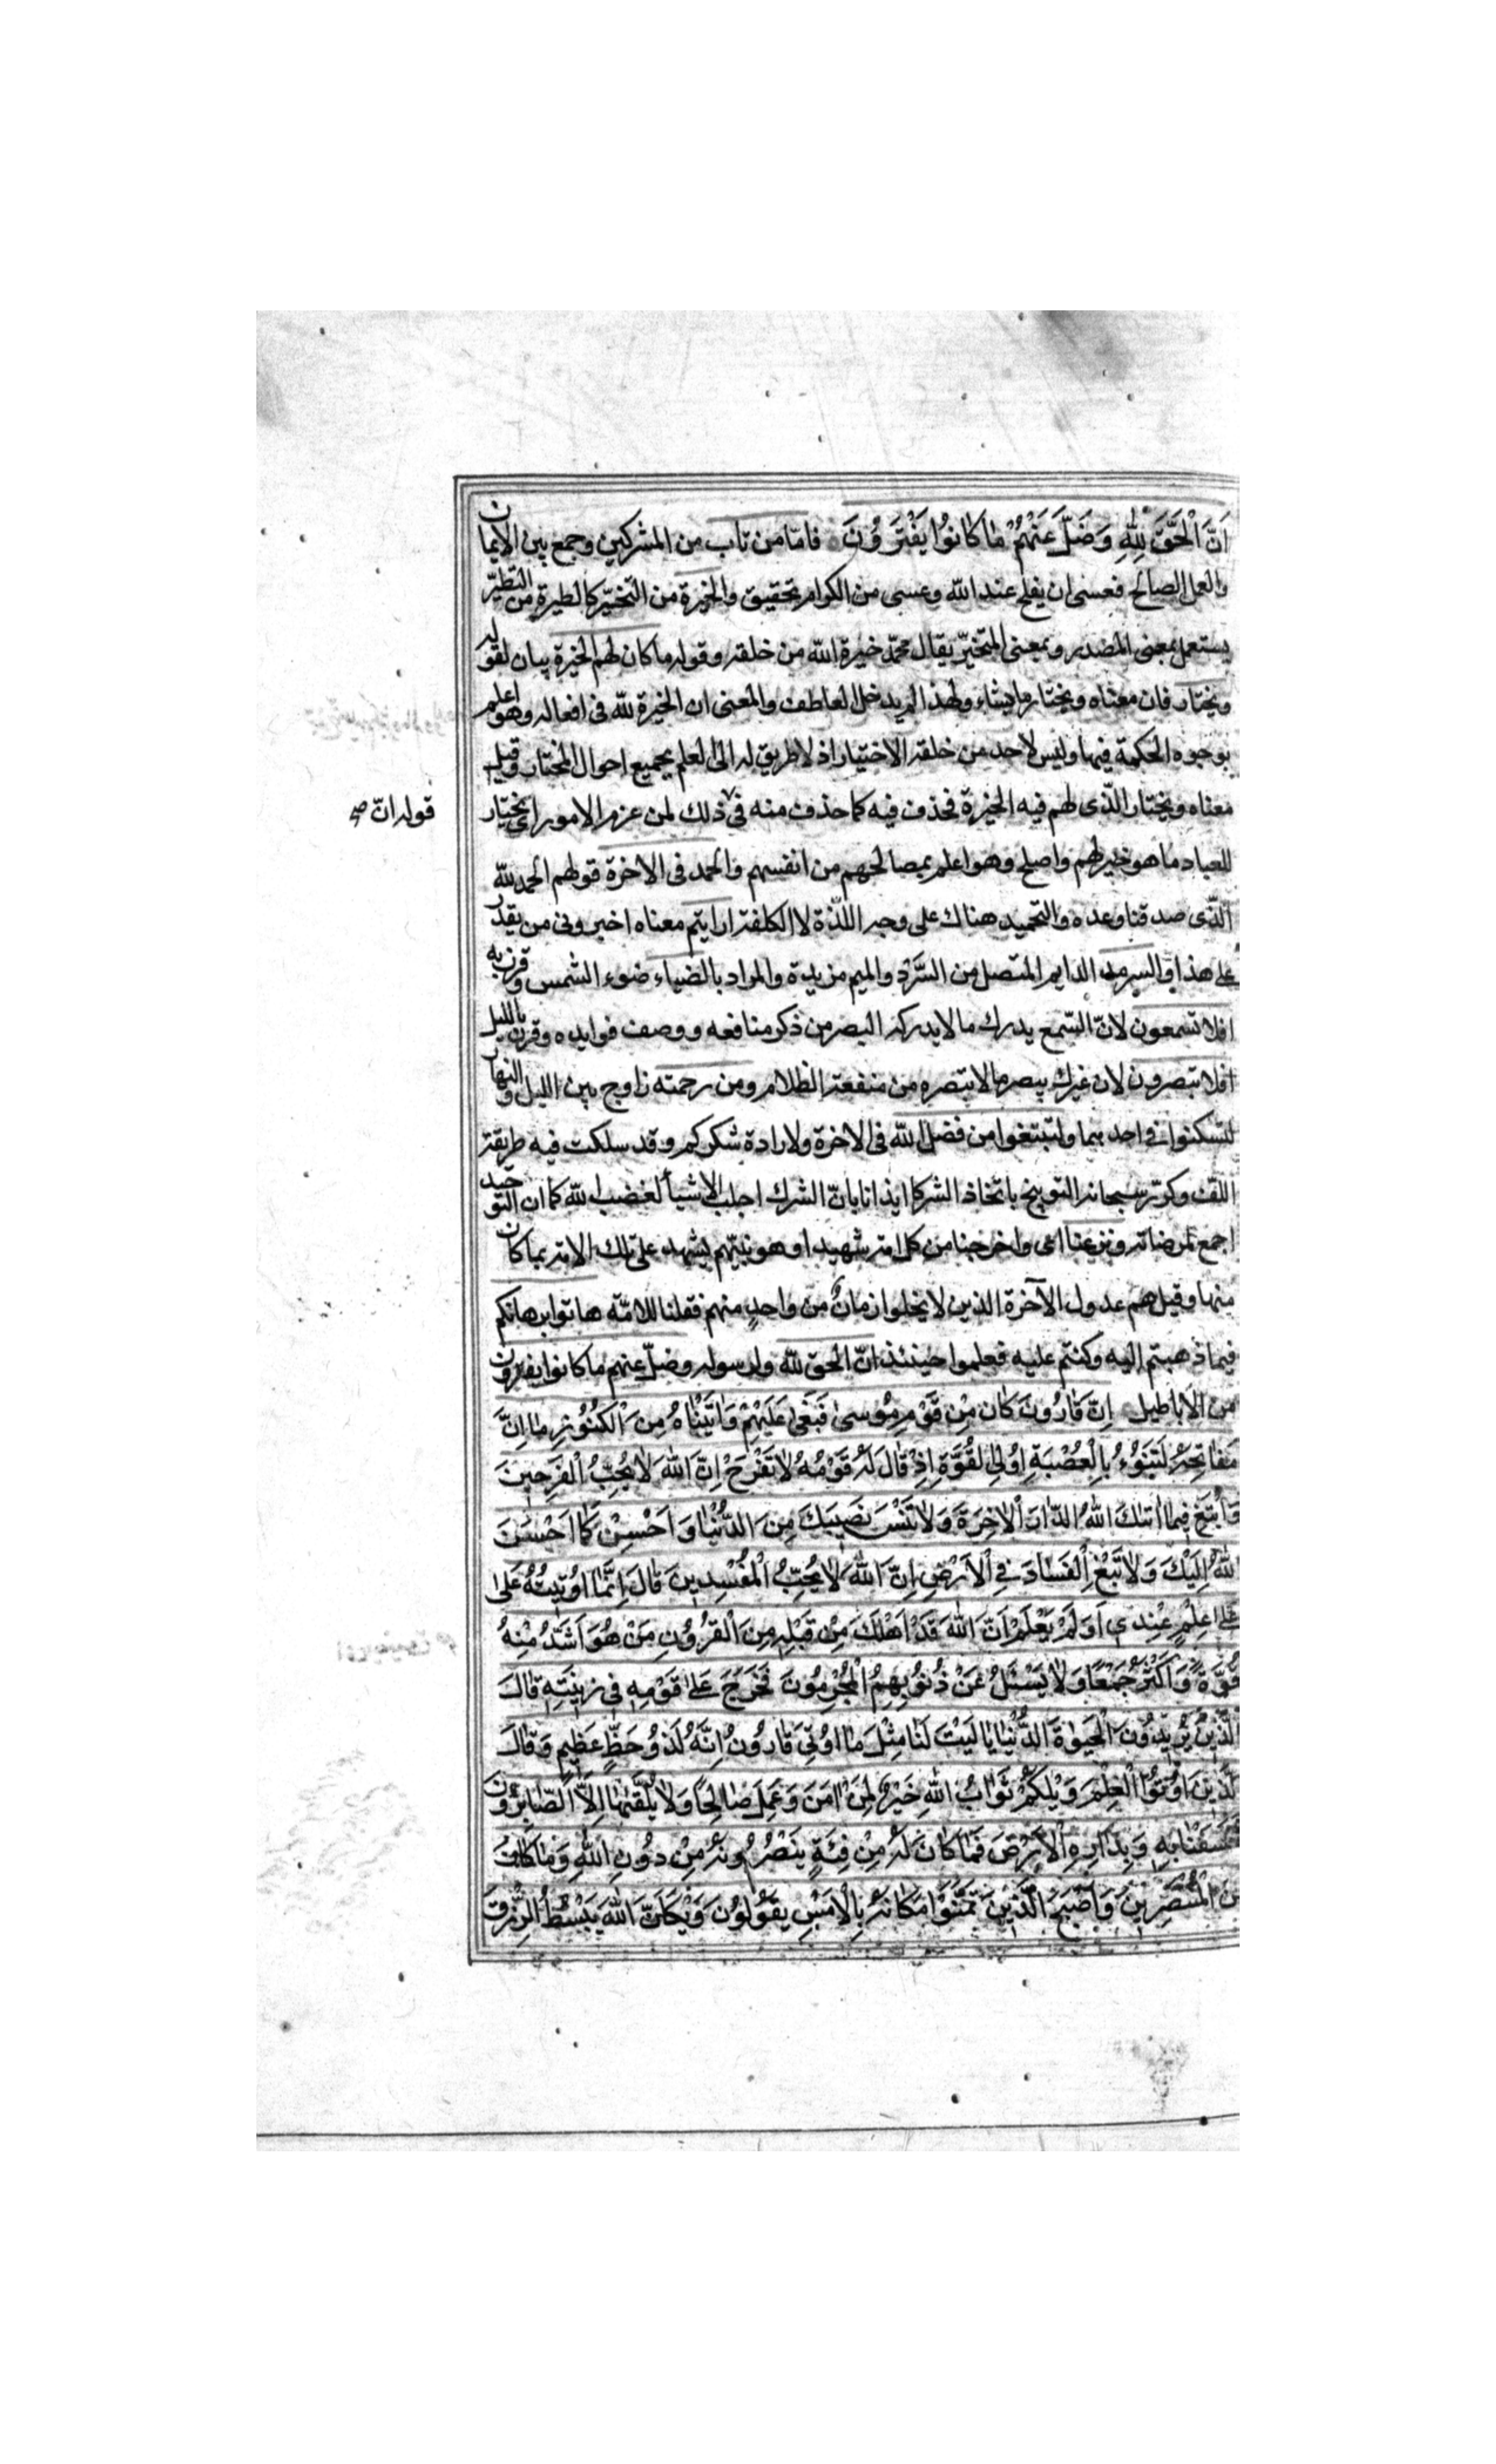 اَنَّ الْحَقَّ لِلّٰهِ وَضَلَّ عَنْهُمْ مٰا كٰانُوا يَفْتَرُونَ فامّا من تاب من المشركين وجمع بين الايمان
والعمل الصالح فعسى ان يفلح عند الله وعسى من الكرام تحقيق والخيرة من التخيّر كالطيرة من التطيّر
يستعمل بمعنى المصدر وبمعنى المتخيّر يقال محمّد خيرة الله من خلقه وقوله ما كان لهم الخيرة بيان لقوله
ويختار فان معناه ويختار ما يشاء ولهذا لم يدخل العاطف والمعنى ان الخيرة لله فى افعاله وهو اعلم
بوجوه الحكمة فيها وليس لاحد من خلقه الاختيار اذ لا طريق له الى العلم بجميع احوال المختار وقيل
معناه ويختار الّذى لهم فيه الخيرة فحذف فيه كما حذف منه فى ذلك لمن عزم الامور اى يختار
للعباد ما هو خير لهم واصلح وهو اعلم بمصالحهم من انفسهم والحمد فى الاخرة قولهم الحمد لله
الّذى صدقنا وعده والتحميد هناك على وجه اللّذة لا الكلفة ارايتم معناه اخبرونى من يقدر
على هذا والسرمد الدايم المتصل من السَّرْد والميم مزيدة والمراد بالضياء ضوء الشمس وقرن به
افلا تسمعون لانّ السّمع يدرك ما لا يدركه البصر من ذكر منافعه ووصف فوايده وقرن بالليل
افلا تبصرون لان غيرك يبصر ما لا تبصره من منفعة الظلام ومن رحمته زاوج بين الليل والنهار
لتسكنوا فى احدهما ولتبتغوا من فضل الله فى الاخرة ولارادة شكركم وقد سلكت فيه طريقة
اللف وكرّر سبحانه التوبيخ باتخاذ الشركا ايذانا بانّ الشرك اجلب الاشيأ لغضب الله كما ان التوحيد
اجمع لمرضاته ونزعنا اى واخرجنا من كل امة شهيدا وهو نبيّهم يشهد على تلك الامة بما كان
منها وقيل هم عدول الآخرة الذين لا يخلوا زمانٌ من واحدٍ منهم فقلنا للامّة هاتوا برهانكم
فيما ذهبتم اليه وكنتم عليه فعلموا حينئذ انّ الحق لله ولرسوله وضلّ عنهم ما كانوا يفترون
من الاباطيل اِنَّ قٰارُونَ كٰانَ مِنْ قَوْمِ مُوسىٰ فَبَغىٰ عَلَيْهِمْ وَاٰتَيْنٰاهُ مِنَ الْكُنُوزِ مٰا اِنَّ
مَفٰاتِحَهُ لَتَنُوءُ بِالْعُصْبَةِ اُولِى الْقُوَّةِ اِذْ قٰالَ لَهُ قَوْمُهُ لاٰ تَفْرَحْ اِنَّ اللّٰهَ لاٰ يُحِبُّ الْفَرِحِينَ
وَابْتَغِ فِيمٰا اٰتٰيكَ اللّٰهُ الدّٰارَ الْاٰخِرَةَ وَلاٰ تَنْسَ نَصِيبَكَ مِنَ الدُّنْيٰا وَاَحْسِنْ كَمٰا اَحْسَنَ
اللّٰهُ اِلَيْكَ وَلاٰ تَبْغِ الْفَسٰادَ فِي الْاَرْضِ اِنَّ اللّٰهَ لاٰ يُحِبُّ الْمُفْسِدِينَ قٰالَ اِنَّمٰا اُوتِيتُهُ عَلىٰ
عَلىٰ عِلْمٍ عِنْدِي اَوَلَمْ يَعْلَمْ اَنَّ اللّٰهَ قَدْ اَهْلَكَ مِنْ قَبْلِهِ مِنَ الْقُرُونِ مَنْ هُوَ اَشَدُّ مِنْهُ
قُوَّةً وَاَكْثَرُ جَمْعًا وَلاٰ يُسْئَلُ عَنْ ذُنُوبِهِمُ الْمُجْرِمُونَ فَخَرَجَ عَلىٰ قَوْمِهِ فِي زِينَتِهِ قٰالَ
الَّذِينَ يُرِيدُونَ الْحَيٰوةَ الدُّنْيٰا يٰا لَيْتَ لَنٰا مِثْلَ مٰا اُوتِيَ قٰارُونُ اِنَّهُ لَذُو حَظٍّ عَظِيمٍ وَقٰالَ
الَّذِينَ اُوتُوا الْعِلْمَ وَيْلَكُمْ ثَوٰابُ اللّٰهِ خَيْرٌ لِمَنْ اٰمَنَ وَعَمِلَ صٰالِحًا وَلاٰ يُلَقّٰيهٰا اِلَّا الصّٰابِرُونَ
فَخَسَفْنٰا بِهِ وَبِدٰارِهِ الْاَرْضَ فَمٰا كٰانَ لَهُ مِنْ فِئَةٍ يَنْصُرُونَهُ مِنْ دُونِ اللّٰهِ وَمٰا كٰانَ
مِنَ الْمُنْتَصِرِينَ وَاَصْبَحَ الَّذِينَ تَمَنَّوْا مَكٰانَهُ بِالْاَمْسِ يَقُولُونَ وَيْكَاَنَّ اللّٰهَ يَبْسُطُ الرِّزْقَ
قوله انّ